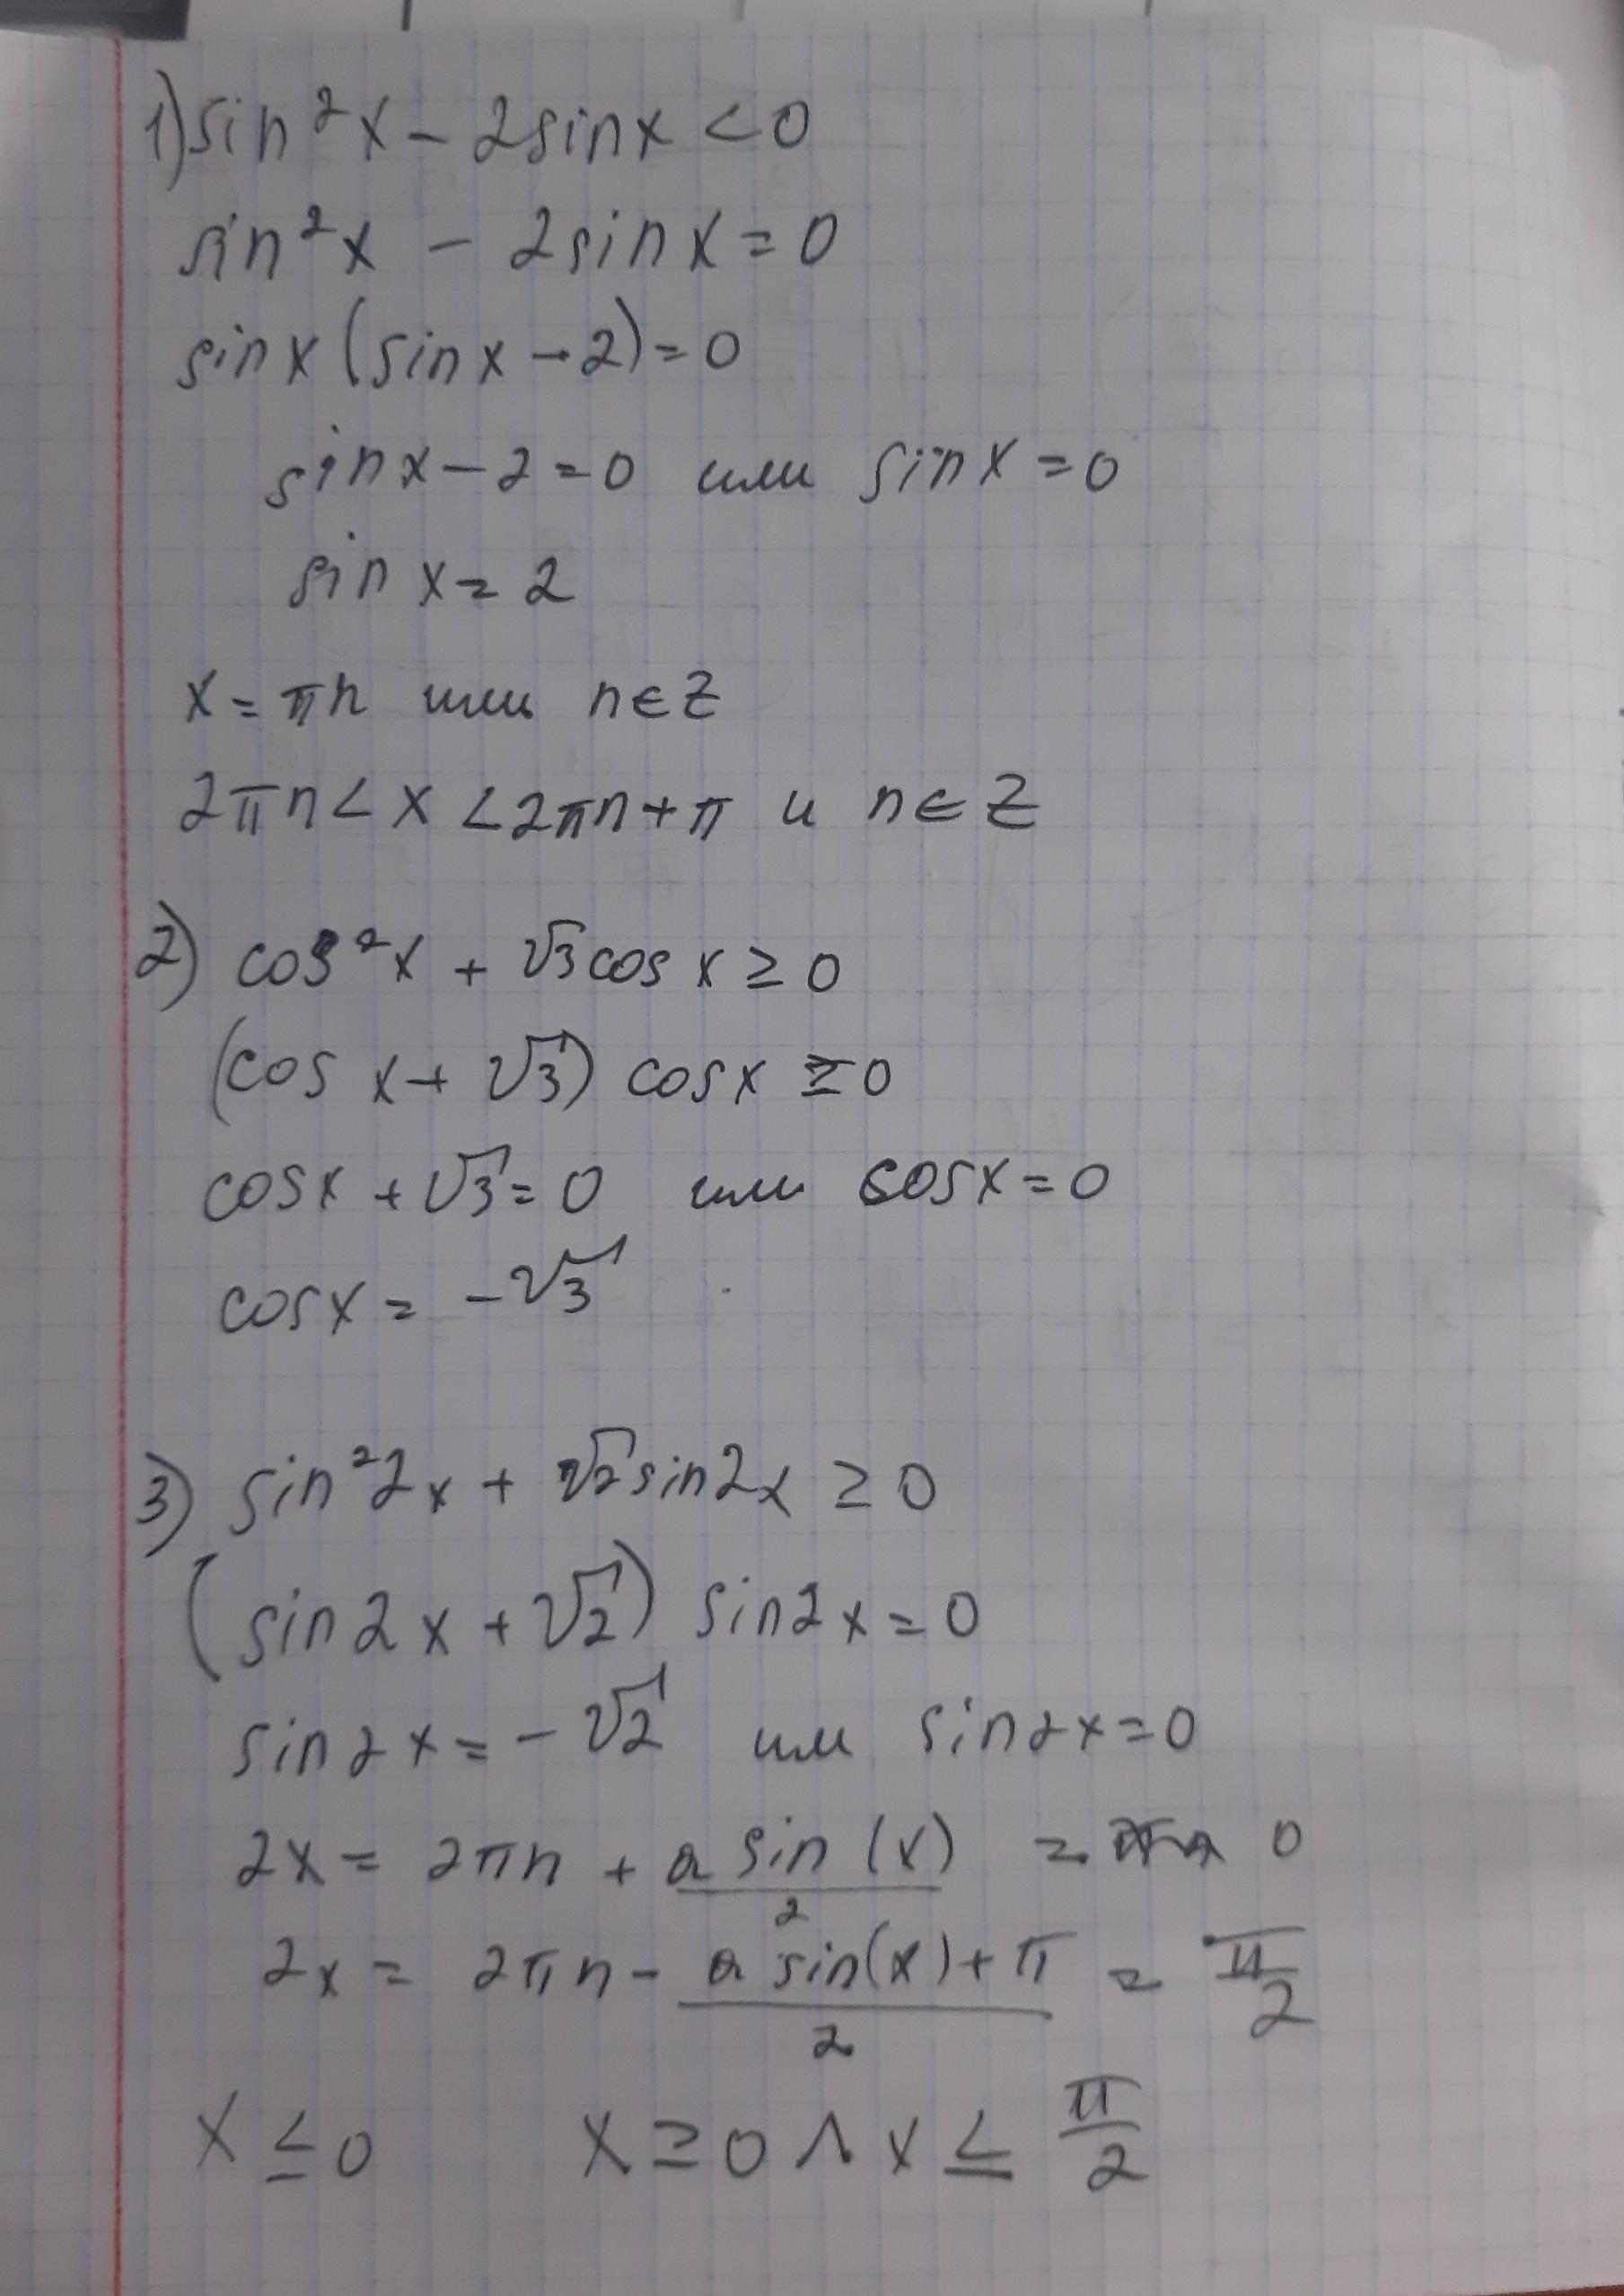 1) sin²x - 2sinx < 0
sin²x - 2sinx = 0
sinx (sinx - 2) = 0
sinx - 2 = 0 или sinx = 0
sinx = 2
x = πn или n ∈ Z
2πn < x < 2πn + π и n ∈ Z
2) cos²x + √3 cosx ≥ 0
(cosx + √3) cosx ≥ 0
cosx + √3 = 0 или cosx = 0
cosx = -√3
3) sin²2x + √2 sin2x ≥ 0
(sin2x + √2) sin2x = 0
sin2x = -√2 или sin2x = 0
2x = 2πn + a sin(x)/2 = 0
2x = 2πn - a sin(x) + π/2 = π/2
x ≤ 0 x ≥ 0 ∧ x ≤ π/2